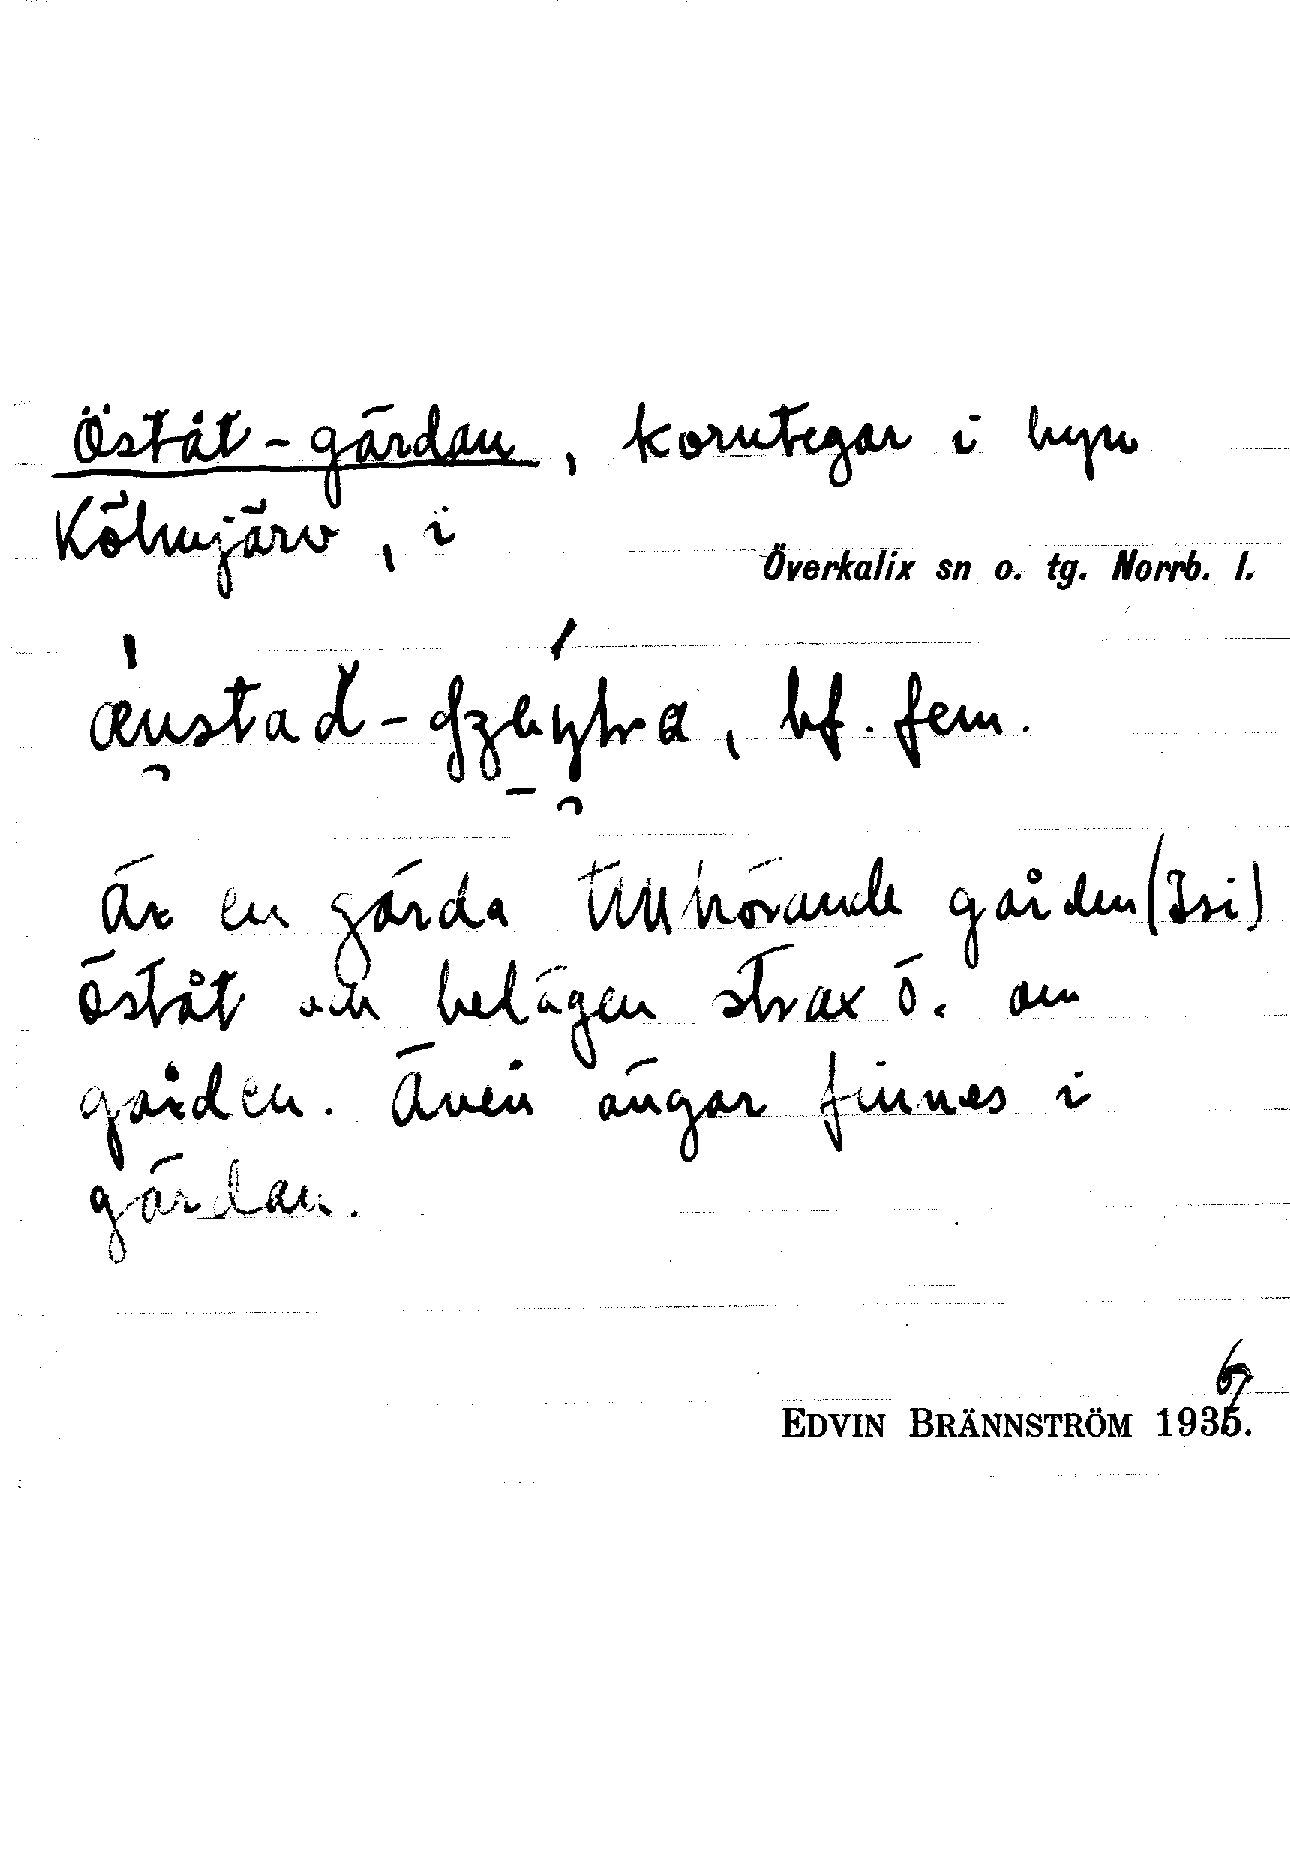 Öståt-gärdan, korntegar i byn
Kölmjärv, i
Överkalix sn o. tg. Norrb. l.
bf. fem.
Är en gärda tillhörande gården (Isi)
öståt och belägen strax ö. om
gården. Även ängar finnes i
gärdan.
EDVIN BRÄNNSTRÖM 1936.